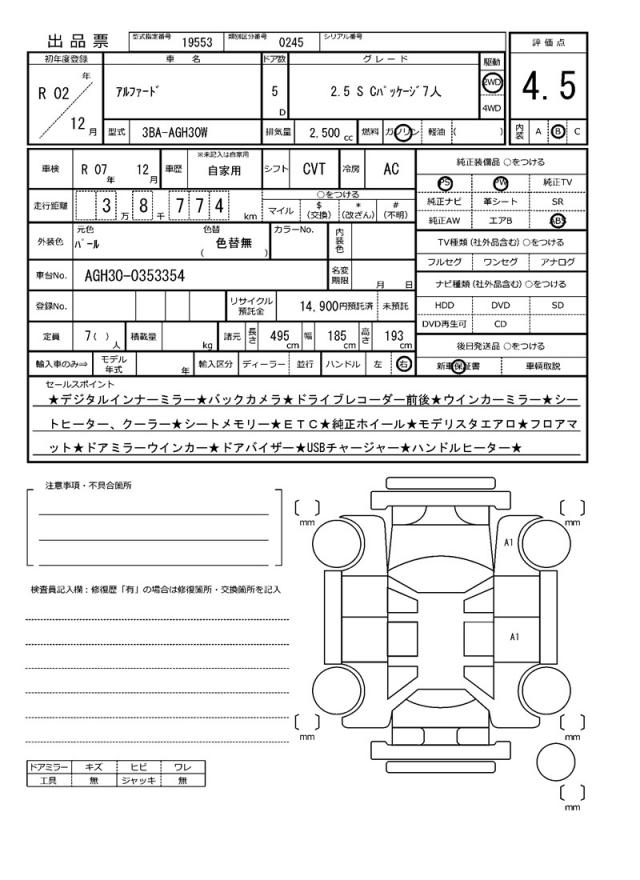 出品票 型式指定番号 19553 類別区分番号 0245 シリアル番号
評価点
4.5
内装 A B C
初年度登録 車名 ドア数 グレード 駆動
R 02 年 12 月 アルファード 5 D 2.5 S Cパッケージ 7人 2WD
4WD
型式 3BA-AGH30W 排気量 2,500 cc 燃料 ガソリン 軽油 ( )
車検 R 07 年 12 月 車歴 ※未記入は自家用 自家用 シフト CVT 冷房 AC
走行距離 3 万 8 千 7 7 4 km
○をつける
マイル $(交換) *(改ざん) #(不明)
外装色 元色 パール 色替 色替無 ( ) カラーNo. 内装色
車台No. AGH30-0353354 名変期限 月 日
登録No. リサイクル預託金 14,900円預託済 未預託
定員 7( ) 人 積載量 kg 諸元 長さ 495 cm 幅 185 cm 高さ 193 cm
輸入車のみ⇒ モデル年式 年 輸入区分 ディーラー 並行 ハンドル 左 右
純正装備品 ○をつける
PS PW 純正TV
純正ナビ 革シート SR
純正AW エアB ABS
TV種類(社外品含む)○をつける
フルセグ ワンセグ アナログ
ナビ種類(社外品含む)○をつける
HDD DVD SD
DVD再生可 CD
後日発送品 ○をつける
新車保証書 車輌取説
セールスポイント
★デジタルインナーミラー★バックカメラ★ドライブレコーダー前後★ウインカーミラー★シー
トヒーター、クーラー★シートメモリー★ETC★純正ホイール★モデリスタエアロ★フロアマ
ット★ドアミラーウインカー★ドアバイザー★USBチャージャー★ハンドルヒーター★
注意事項・不具合箇所
検査員記入欄:修復歴「有」の場合は修復箇所・交換箇所を記入
mm
mm
A1
A1
mm
mm
mm
ドアミラー キズ ヒビ ワレ
工具 無 ジャッキ 無